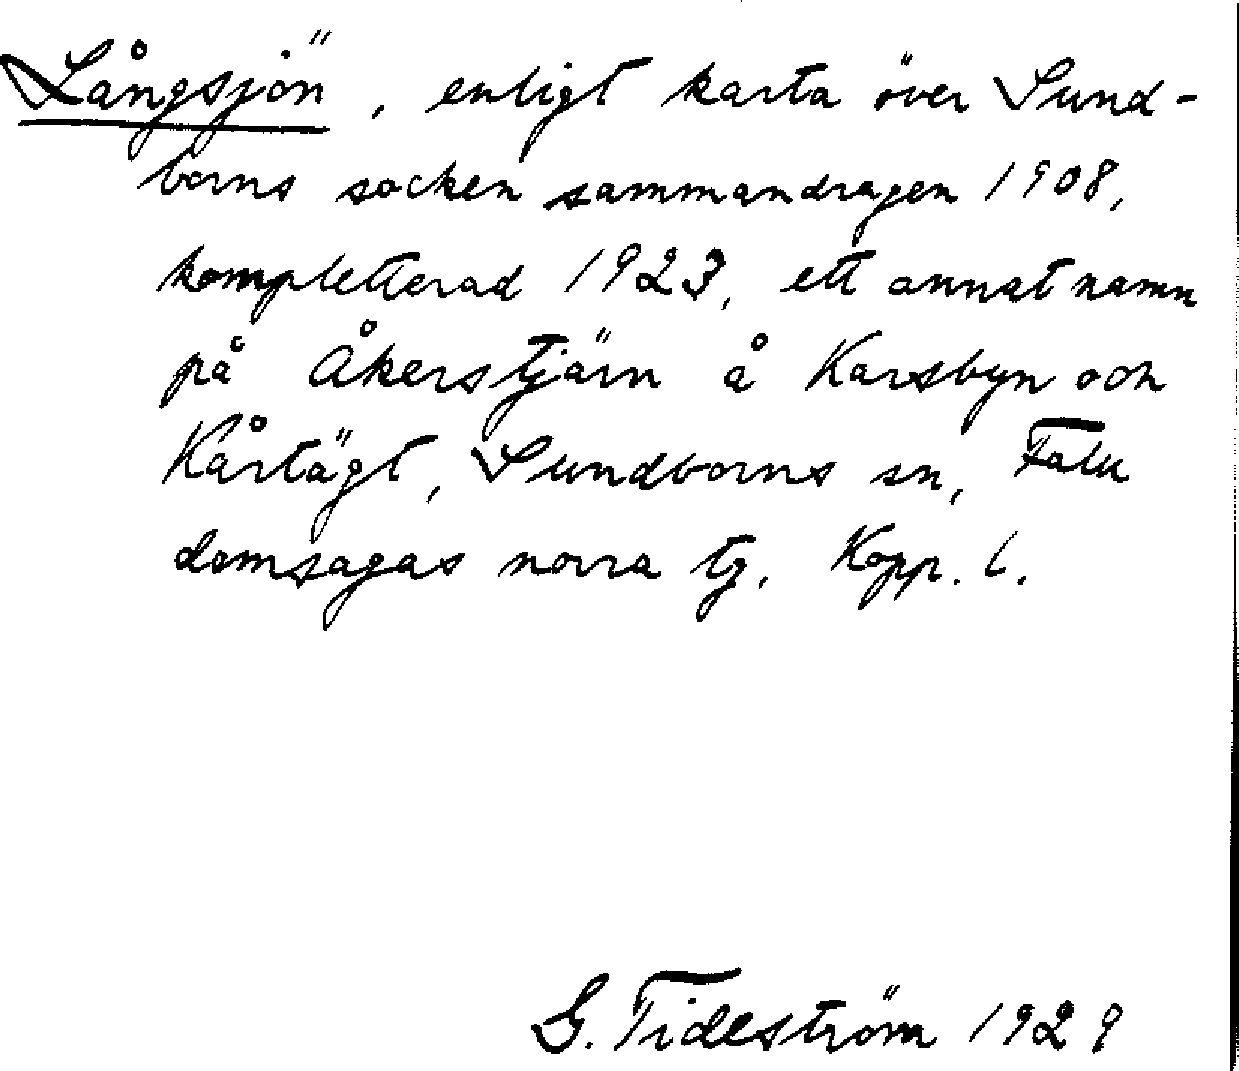 Långsjön, enligt karta över Sund-
borns socken sammandragen 1908,
kompletterad 1923, ett annat namn
på Åkerstjärn å Karsbyn och
Kårtägt, Sundborns sn, Falu
domsagas norra tg. Kopp. l.
G. Tideström 1929